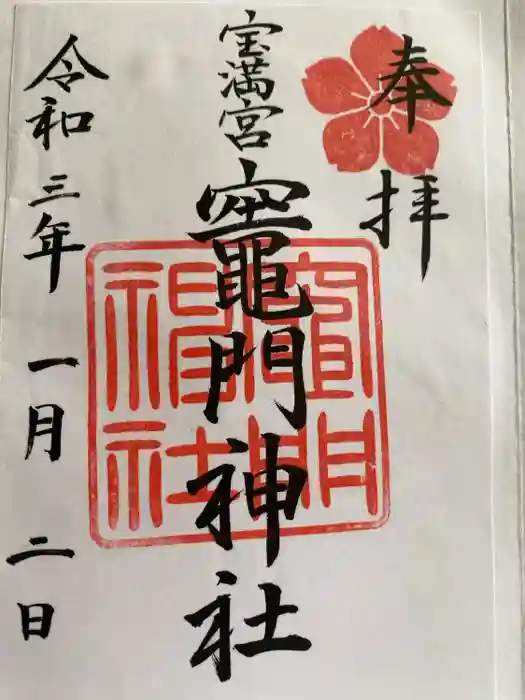 奉拝
宝満宮
竈門神社
令和三年 一月 二日